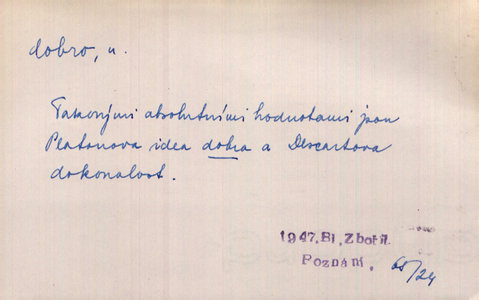 dobro, n.
Takovými absolutními hodnotami jsou
Platonova idea dobra a Descartova
dokonalost.
1947, Bl. Zbořil
Poznání,
68/24